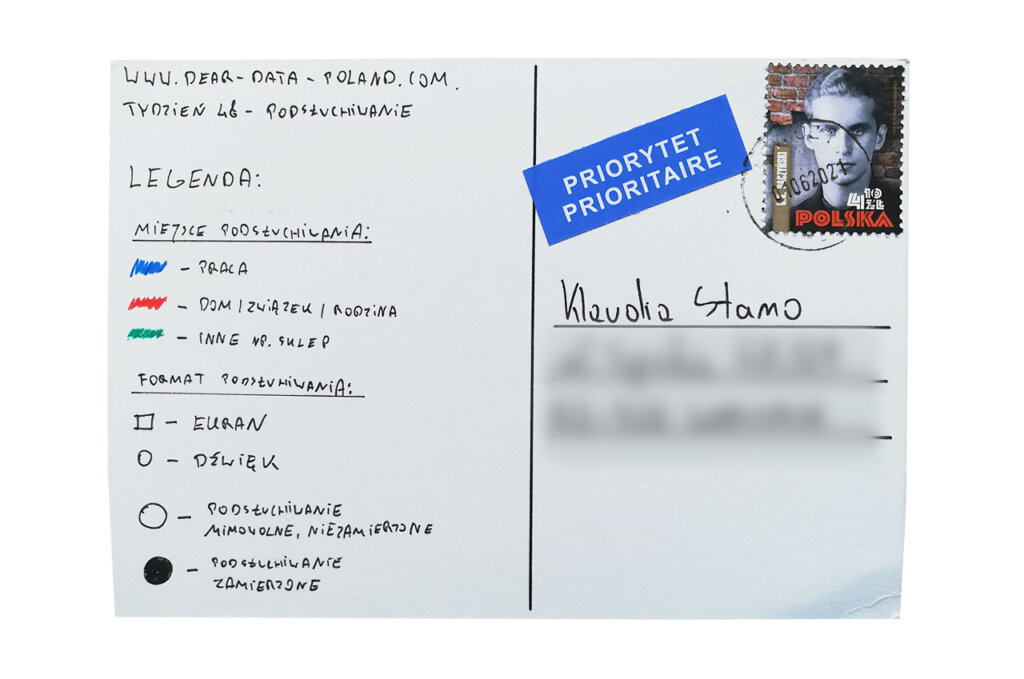 WWW.DEAR-DATA-POLAND.COM.
TYDZIEŃ 46 - PODSŁUCHIWANIE
LEGENDA:
MIEJSCE PODSŁUCHIWANIA:
- PRACA
- DOM / ZWIĄZEK / RODZINA
- INNE NP. SKLEP
FORMAT PODSŁUHIWANIA:
- EKRAN
- DŹWIĘK
- PODSŁUCHIWANIE
MIMOWOLNE, NIEZAMIERZONE
- PODSŁUCHIWANIE
ZAMIERZONE
PRIORYTET
PRIORITAIRE
BACZYŃSKI
062021
4 10 ZŁ
POLSKA
Klaudia Stamo